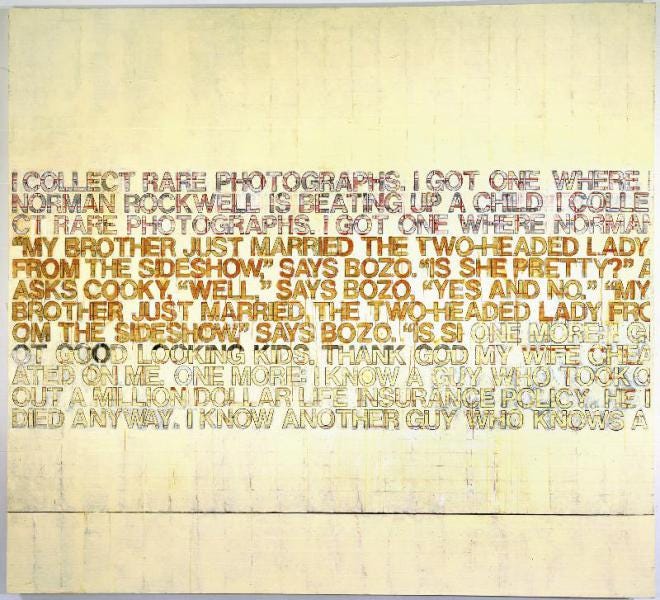 I COLLECT RARE PHOTOGRAPHS. I GOT ONE WHERE
NORMAN ROCKWELL IS BEATING UP A CHILD I COLLE
CT RARE PHOTOGRAPHS. I GOT ONE WHERE NORMAN
“MY BROTHER JUST MARRIED THE TWO-HEADED LADY
FROM THE SIDESHOW,” SAYS BOZO. “IS SHE PRETTY?” A
ASKS COOKY. “WELL,” SAYS BOZO, “YES AND NO.” “MY
BROTHER JUST MARRIED THE TWO-HEADED LADY FRO
OM THE SIDESHOW” SAYS BOZO. “IS SI ONE MORE: I G
OT GOOD LOOKING KIDS. THANK GOD MY WIFE CHEA
ATED ON ME. ONE MORE: I KNOW A GUY WHO TOOK O
OUT A MILLION DOLLAR LIFE INSURANCE POLICY. HE
DIED ANYWAY. I KNOW ANOTHER GUY WHO KNOWS A